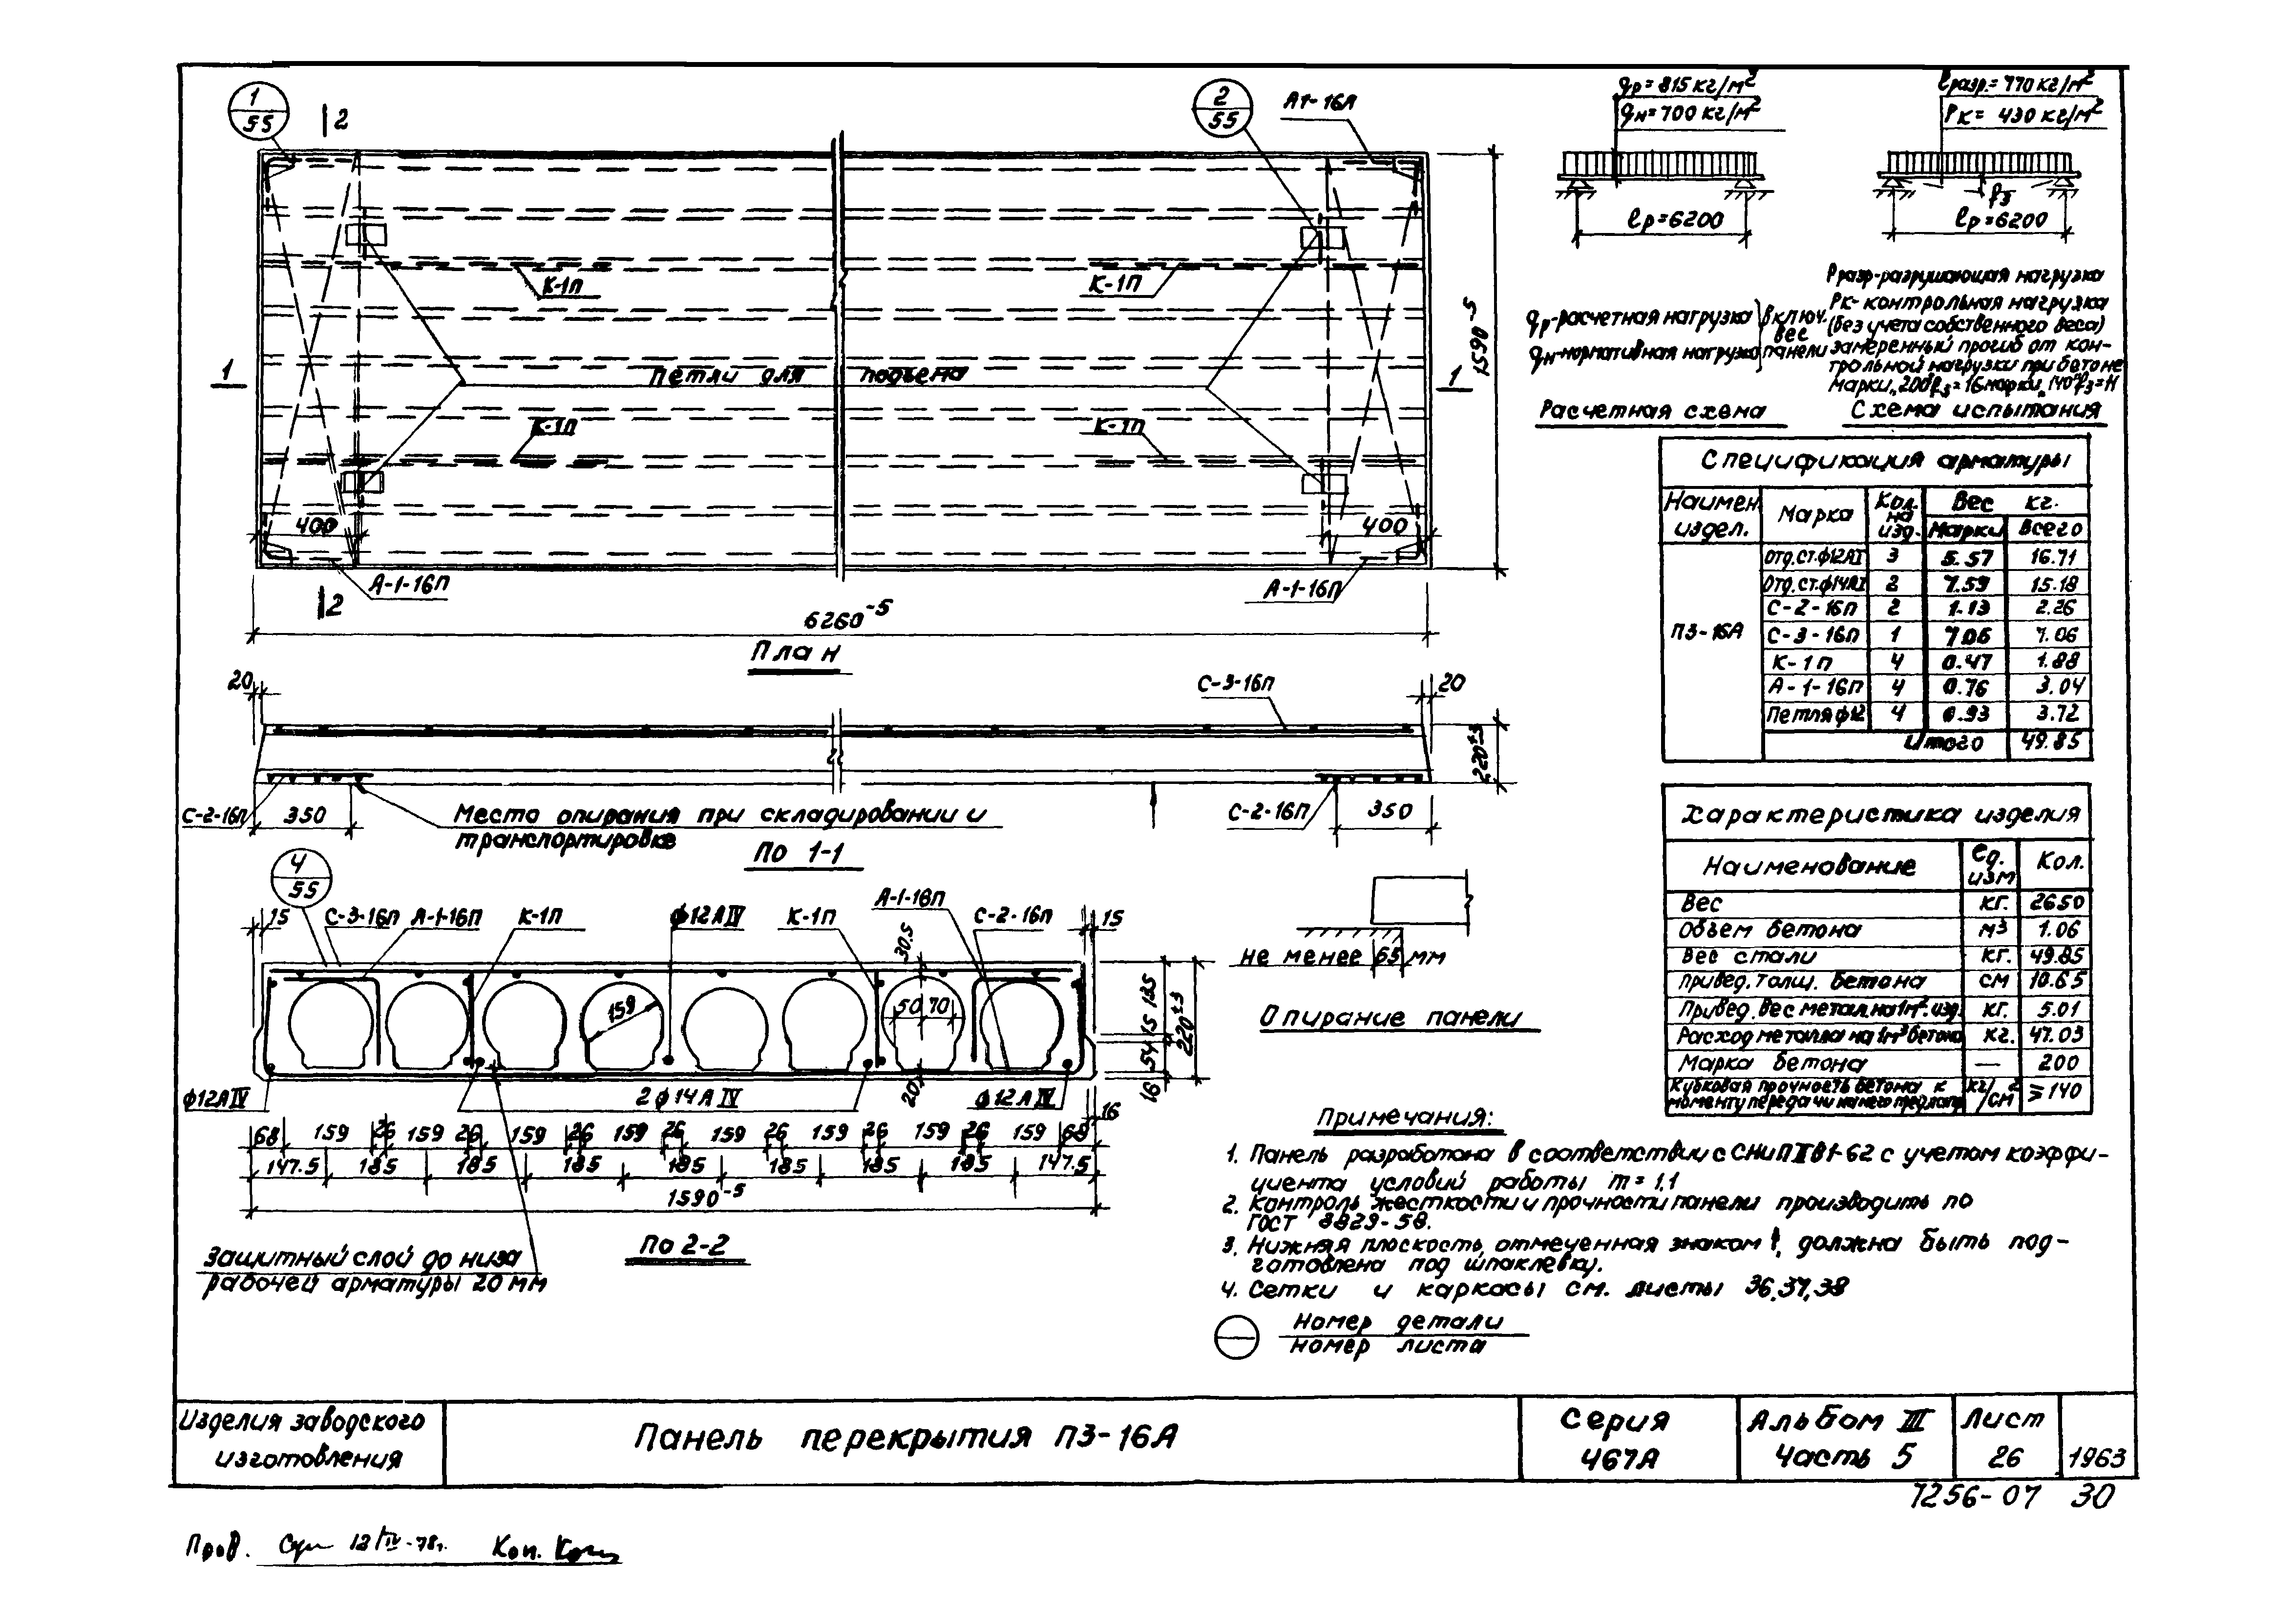 1
55
2
2
55
А1-16А
К-1П
К-1П
1
Петли для подъема
1
К-1П
К-1П
400
400
А-1-16П
А-1-16П
2
1590⁻⁵
6260⁻⁵
План
20
С-3-16П
20
220±5
С-2-16П
350
Место опирания при складировании и
транспортировке
С-2-16П
350
По 1-1
4
55
15
С-3-16П
А-1-16П
К-1П
ф12АⅣ
К-1П
А-1-16П
С-2-16П
15
30.5
159
50
70
135
15
54
16
220±3
20
ф12АⅣ
2ф14АⅣ
ф12АⅣ
16
68 159 26 159 26 159 26 159 26 159 26 159 26 159 26 159 68
147.5 185 185 185 185 185 185 185 147.5
1590⁻⁵
По 2-2
Защитный слой до низа
рабочей арматуры 20 мм
не менее 65 мм
Опирание панели
qр=815 кг/м²
qн=700 кг/м²
ℓр=6200
Рразр.=770 кг/м²
Рк= 430 кг/м²
f₃
ℓр=6200
qр-расчетная нагрузка
qн-нормативная нагрузка
включ.
вес
панели
Рразр-разрушающая нагрузка
Рк-контрольная нагрузка
(без учета собственного веса)
замеренный прогиб от кон-
трольной нагрузки при бетоне
марки „200"f₃=16 марки „140"f₃=Н
Расчетная схема
Схема испытания
Спецификация арматуры
Наимен. издел. Марка Кол. на изд. Вес кг.
Марки Всего
П3-16А
Отд.ст.ф12АⅣ 3 5.57 16.71
Отд.ст.ф14АⅣ 2 7.59 15.18
С-2-16П 2 1.13 2.26
С-3-16П 1 7.06 7.06
К-1П 4 0.47 1.88
А-1-16П 4 0.76 3.04
Петля ф12 4 0.93 3.72
Итого 49.85
Характеристика изделия
Наименование Ед. изм Кол.
Вес кг. 2650
Объем бетона м³ 1.06
Вес стали кг. 49.85
Привед. толщ. бетона см 10.65
Привед. вес метал. на 1м². изд. кг. 5.01
Расход металла на 1м³ бетона кг. 47.03
Марка бетона — 200
Кубковая прочность бетона к
моменту передачи кг/см² ⩾140
Примечания:
1. Панель разработана в соответствии с СНиП Ⅱ В1-62 с учетом коэффи-
циента условий работы m=1.1
2. Контроль жесткости и прочности панели производить по
ГОСТ 8829-58.
3. Нижняя плоскость, отмеченная знаком ↑, должна быть под-
готовлена под шпаклевку.
4. Сетки и каркасы см. листы 36,37,38
Номер детали
номер листа
Изделия заводского
изготовления
Панель перекрытия П3-16А
Серия
467А
Альбом Ⅲ
Часть 5
Лист
26
1963
7256-07 30
Пров. 12/Ⅳ-78г. Коп.